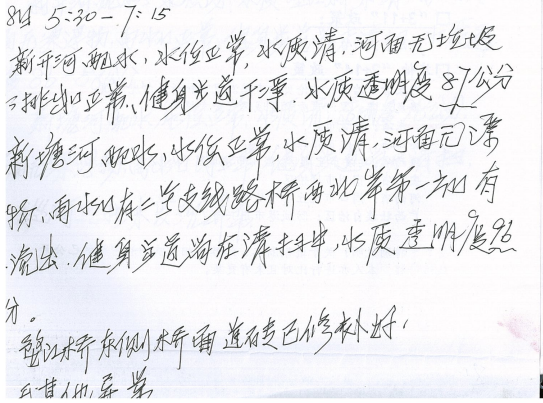 8/4 5:30-7:15
新开河配水,水位正常,水质清,河面无垃圾
排口正常,健身步道干净.水质透明度87公分
新塘河配水,水位正常,水质清,河面无漂
物,雨水口有二号支线路桥西北岸第一口有
流出.健身步道尚在清扫中,水质透明度96
分。
望江桥东侧桥面道砖已修补好,
其他异常